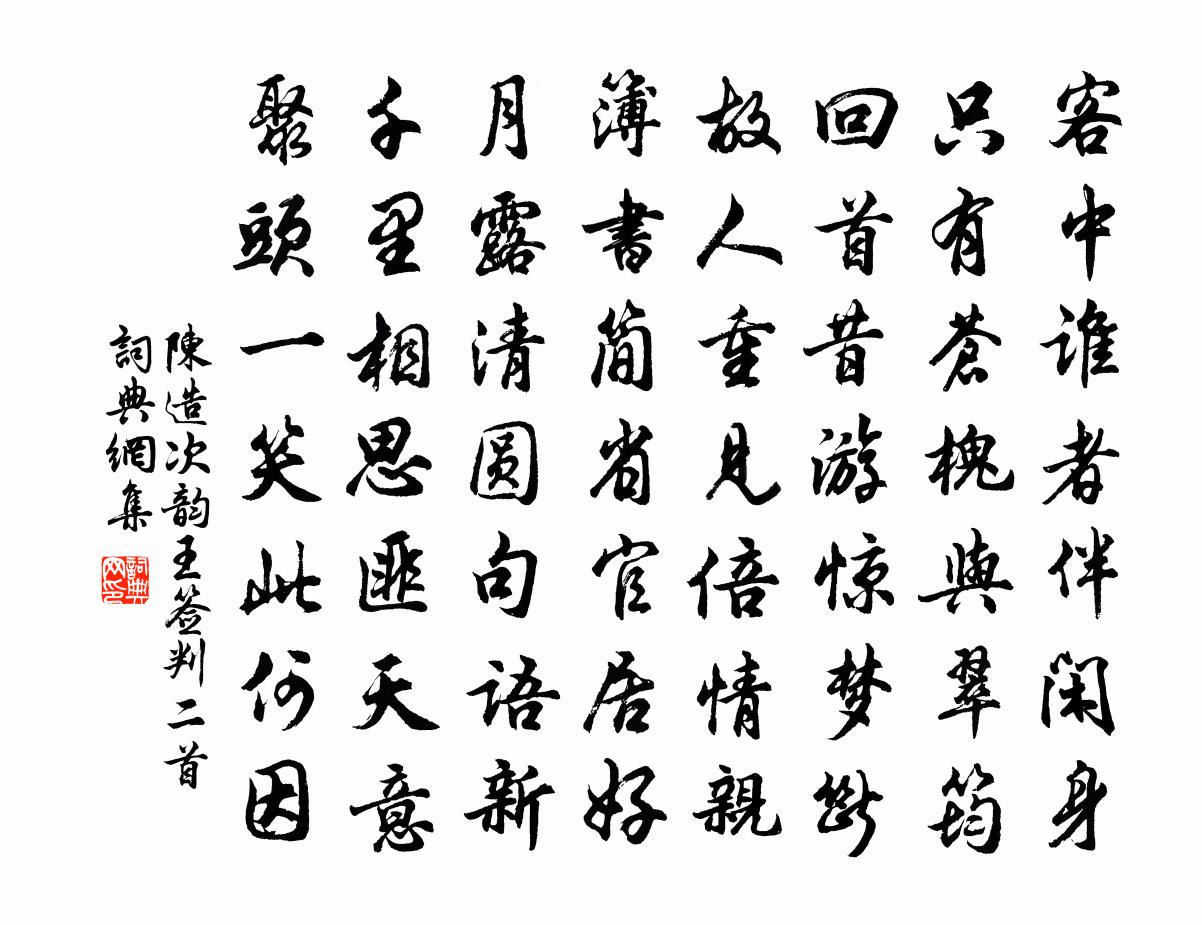 客中谁者伴闲身
只有苍槐與翠筠
回首昔游惊梦断
故人重見倍情親
簿書简省官居好
月露清圆句语新
千里相思匪天意
聚頭一笑此何因
陳造次韵王签判二首
詞典網集
詞典网印